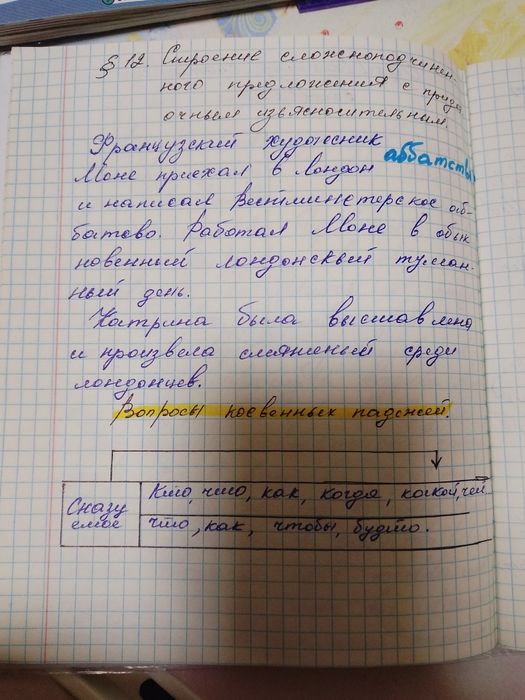 § 12. Строение сложноподчинен-
ного предложения с прида
очным изъяснительным.
Французский художник
аббатство
Моне приехал в Лондон
и написал Вестминстерское аб-
батсво. Работал Моне в обык
новенный лондонский туман-
ный день.
Картина была выставлена
и произвела смятенный среди
лондонцев.
Вопросы косвенных падежей.
Сказу
емое
Кто, что, как, когда, какой, чей
что, как, чтобы, будто.